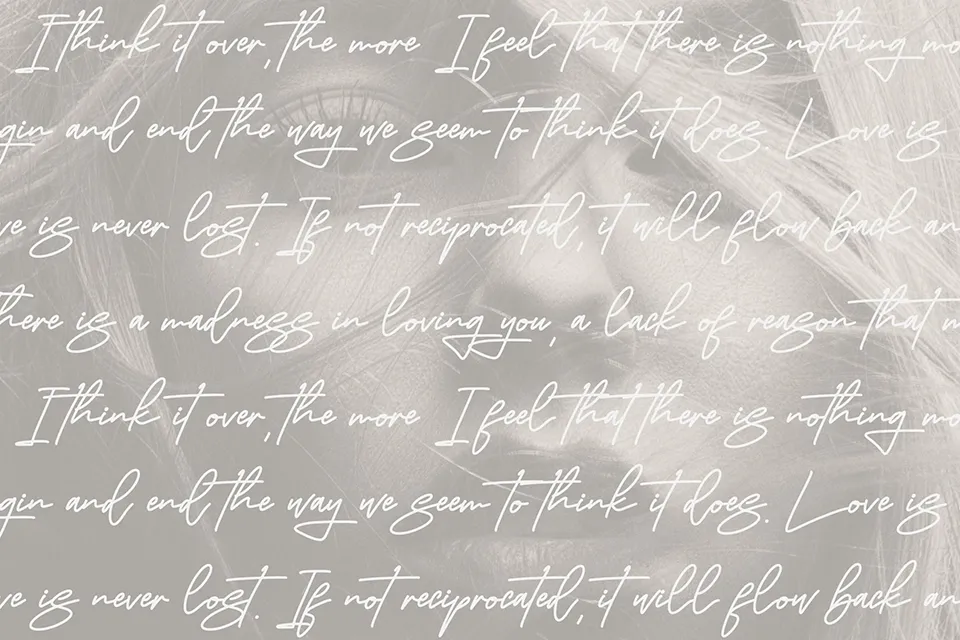 I think it over, the more I feel that there is nothing mo
gin and end the way we seem to think it does. Love is
ve is never lost. If not reciprocated, it will flow back an
here is a madness in loving you, a lack of reason that m
I think it over, the more I feel that there is nothing mo
gin and end the way we seem to think it does. Love is
ve is never lost. If not reciprocated, it will flow back an